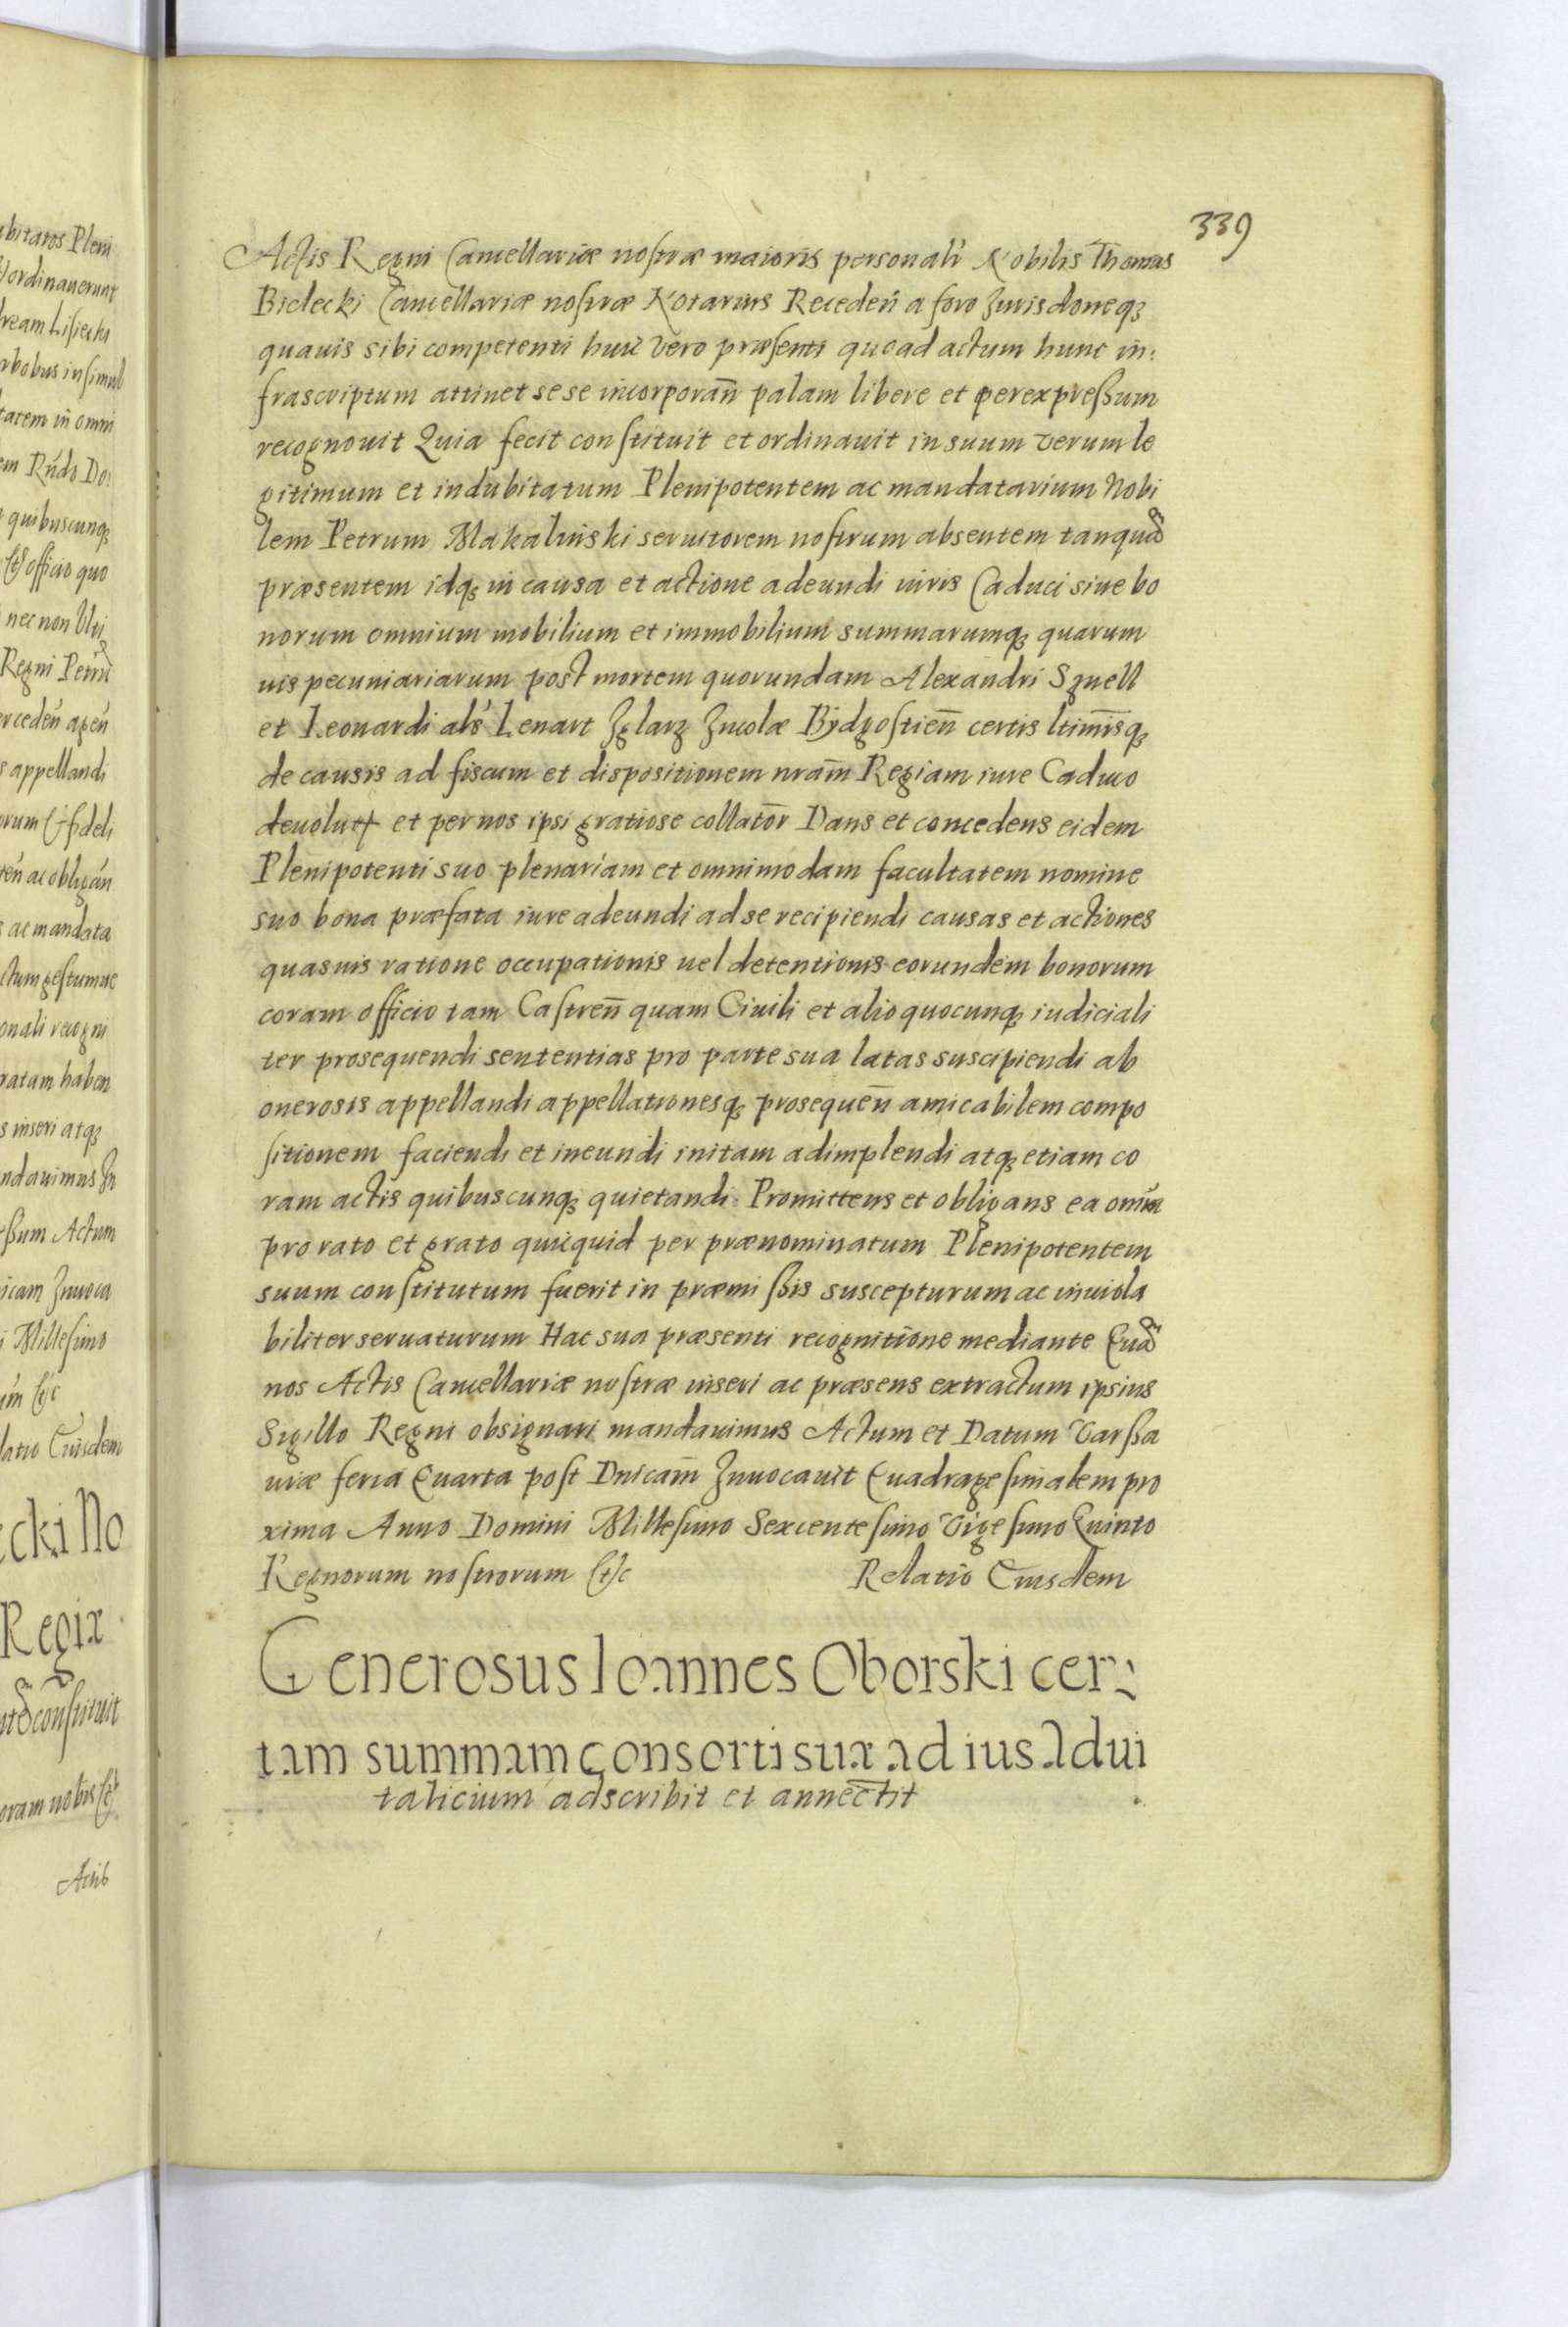 339
Actis Regni Cancellariæ nostræ maioris personalr Nobilis Thomas
Bielecki Cancellariæ nostræ Notarius Receden̄ a foro Jurisdoneq
quauis sibi competenti huic vero præsenti quoad actum hunc in:
frascriptum attinet sese incorporan̄ palam libere et per expreßum
recognouit Quia fecit constituit et ordinauit in suum verum le
gitimum et indubitatum Plenipotentem ac mandatarium Nobi
lem Petrum Makalinski seruitorem nostrum absentem tanquā
præsentem idq in causa et actione adeundi iuris Caduci siue bo
norum omnium mobilium et immobilium summarumq quarum
uis pecuniariarum post mortem quorundam Alexandri Sznell
et Leonardi als Lenart Zglarz Incolæ Bydgostien̄ certis ltimisq
de causis ad fiscum et dispositionem nram̄ Regiam iure Caduco
deuolut et per nos ipsi gratiose collator̄ Dans et concedens eidem
Plenipotenti suo plenariam et omnimodam facultatem nomine
suo bona præfata iure adeundi ad se recipiendi causas et actiones
quasuis ratione occupationis uel detentionis eorundem bonorum
coram officio tam Castren̄ quam Ciuili et alio quocunq iudiciali
ter prosequendi sententias pro parte sua latas suscipiendi ab
onerosis appellandi appellationesq prosequen̄ amicabilem compo
sitionem faciendi et ineundi initam adimplendi atq etiam co
ram actis quibuscunq quietandi. Promittens et obligans ea omīa
pro rato et grato quicquid per prænominatum Plenipotentem
suum constitutum fuerit in præmißis suscepturum ac inuiola
biliter seruaturum Hac sua præsenti recognitione mediante Quā
nos Actis Cancellariæ nostræ inseri ac præsens extractum ipsius
Sigillo Regni obsignari mandauimus Actum et Datum Varßa
uiæ feria Quarta post Dnicam̄ Inuocauit Quadragesimalem pro
xima Anno Domini Millesimo Sexcentesimo Vigesimo Quinto
Regnorum nostrorum etc Relatio Eiusdem
Generosus Ioannes Oborski cer:
tam summam consorti suæ ad ius Adui
talicium adscribit et annectit